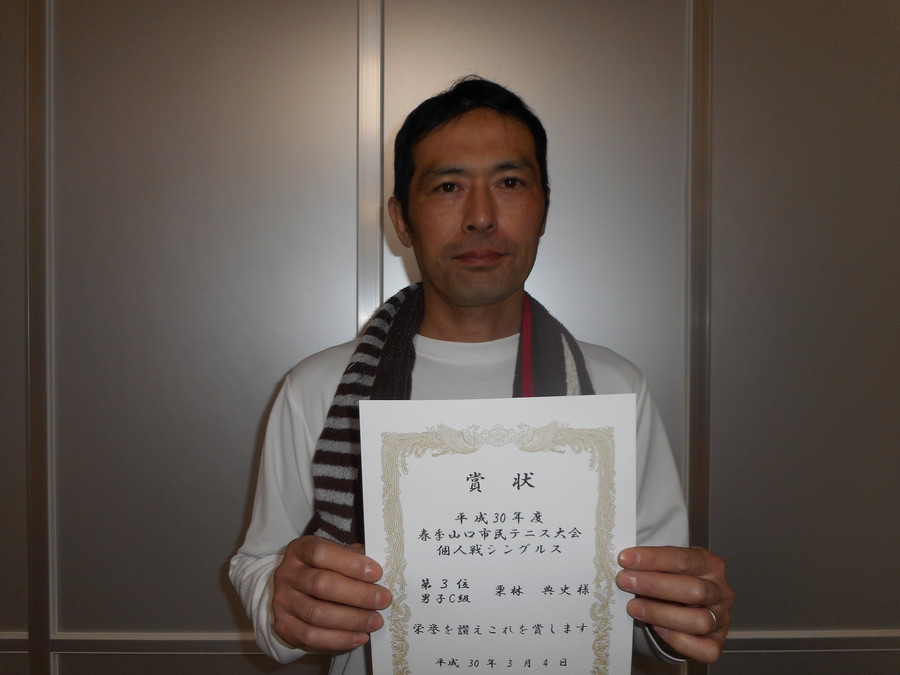 賞状
平成30年度
春季山口市民テニス大会
個人戦シングルス
第3位
男子C級 栗林 典史様
栄誉を讃えこれを賞します
平成30年3月4日